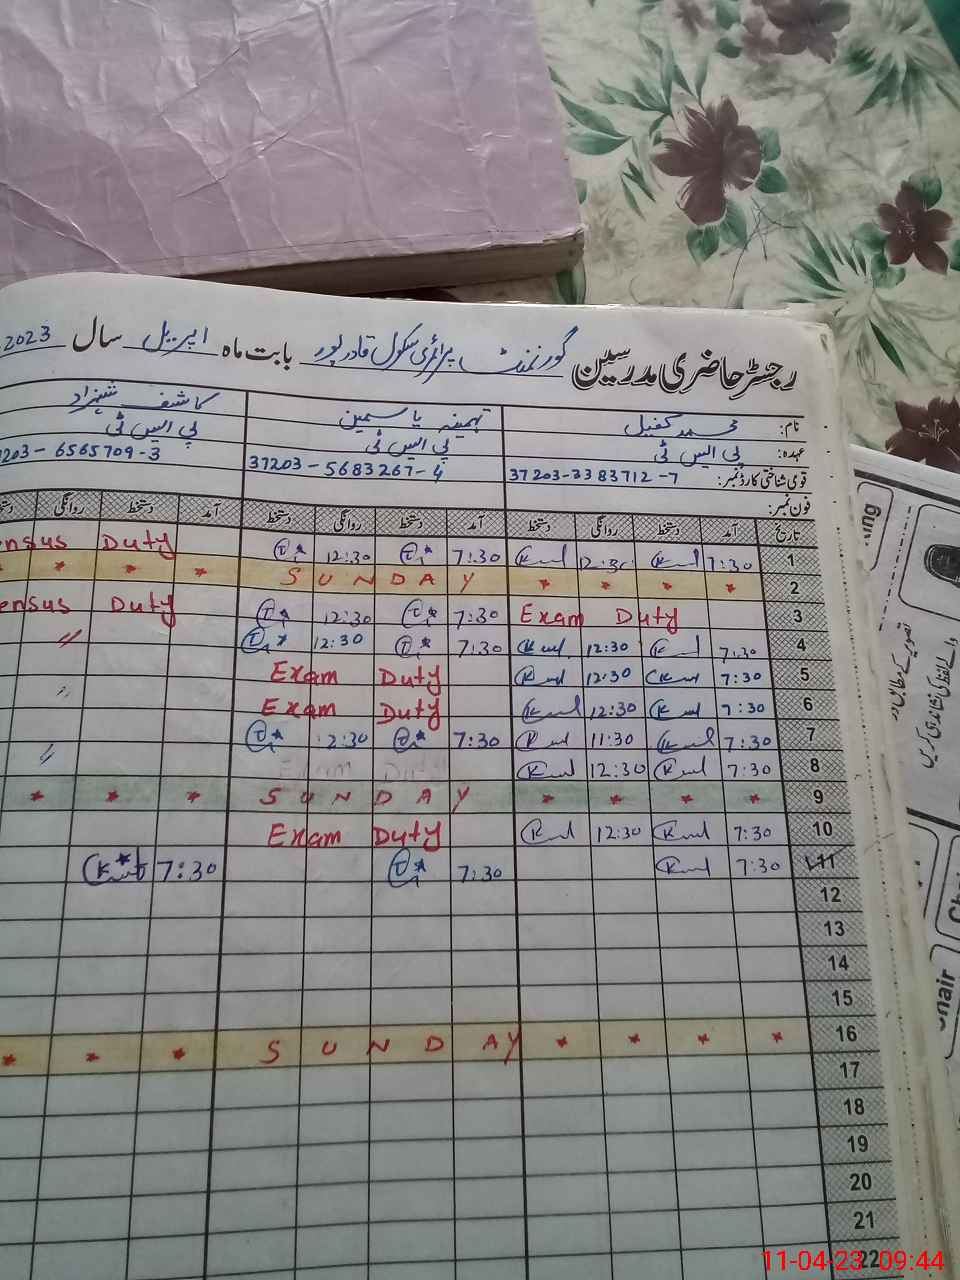 رجسٹر حاضری مدرسین گورنمنٹ پرائمری سکول قادرپور بابت ماہ اپریل سال 2023
نام: محمد کفیل تہمینہ یاسمین کاشف شہزاد
عہدہ: پی ایس ٹی پی ایس ٹی پی ایس ٹی
قومی شناختی کارڈ نمبر: 37203-3383712-7 37203-5683267-4 7203-6565709-3
فون نمبر:
تاریخ آمد دستخط روانگی دستخط آمد دستخط روانگی دستخط آمد دستخط روانگی
1 7:30 12:30 7:30 12:30 ensus Duty
2 * * * * S U N D A Y * * *
3 Exam Duty 7:30 12:30 ensus Duty
4 7:30 12:30 7:30 12:30 "
5 7:30 12:30 Exam Duty
6 7:30 12:30 Exam Duty "
7 7:30 11:30 7:30 2:30
8 7:30 12:30 Exam Duty "
9 * * * * S U N D A Y * * *
10 7:30 12:30 Exam Duty
11 7:30 7:30 7:30
12
13
14
15
16 * * * * S U N D A Y * * *
17
18
19
20
21
22
تصویر کے مطابق
کی نشاندہی کریں
hair
11-04-23 09:44